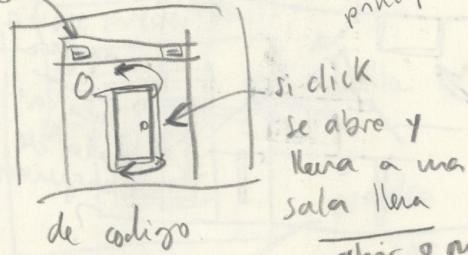 si click
se abre y
lleva a una
sala llena
de codigo